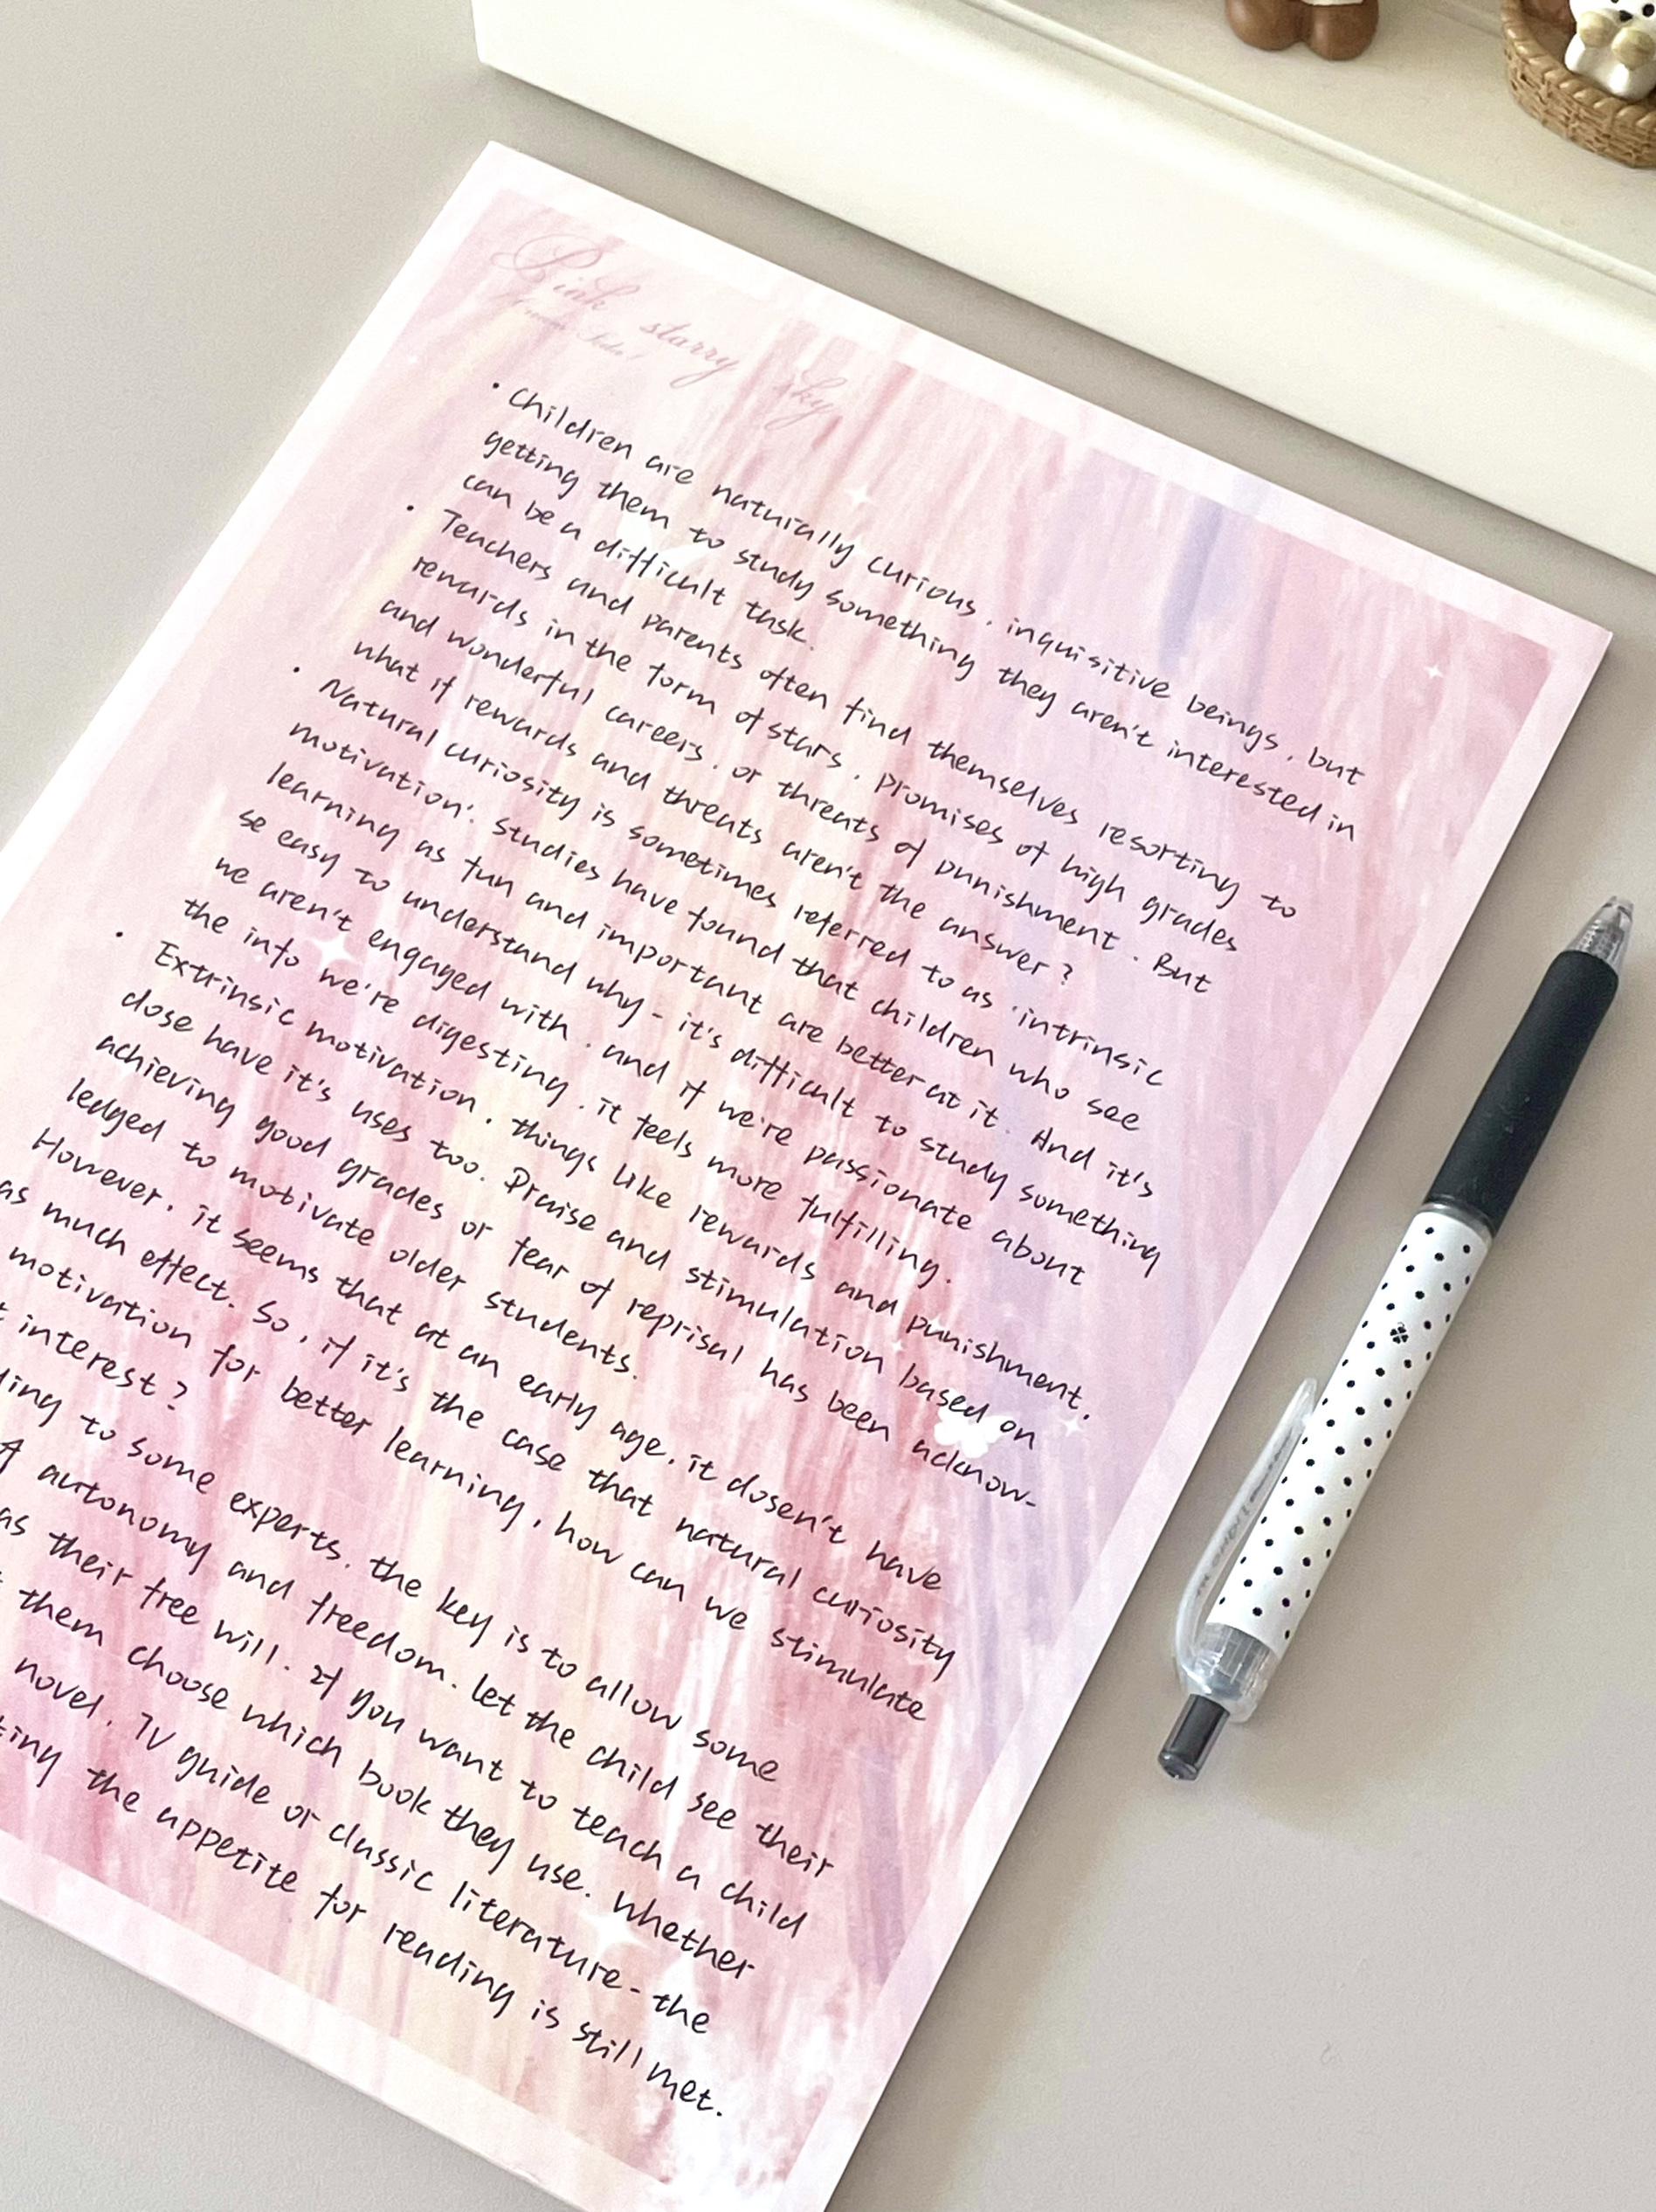 Pink starry sky
• Children are naturally curious, inquisitive beings, but
getting them to study something they aren't interested in
can be a difficult task.
• Teachers and parents often find themselves resorting to
rewards in the form of stars, promises of high grades
and wonderful careers, or threats of punishment. But
what if rewards and threats aren't the answer?
• Natural curiosity is sometimes referred to as 'intrinsic
motivation'. Studies have found that children who see
learning as fun and important are better at it. And it's
se easy to understand why - it's difficult to study something
we aren't engaged with, and if we're passionate about
the info we're digesting, it feels more fulfilling.
• Extrinsic motivation, things like rewards and punishment,
dose have it's uses too. Praise and stimulation based on
achieving good grades or fear of reprisal has been acknow-
ledged to motivate older students.
However, it seems that at an early age, it dosen't have
as much effect. So, if it's the case that natural curiosity
motivation for better learning, how can we stimulate
interest?
to some experts, the key is to allow some
autonomy and freedom. let the child see their
as their free will. If you want to teach a child
them choose which book they use. Whether
novel, TV guide or classic literature - the
the appetite for reading is still met.